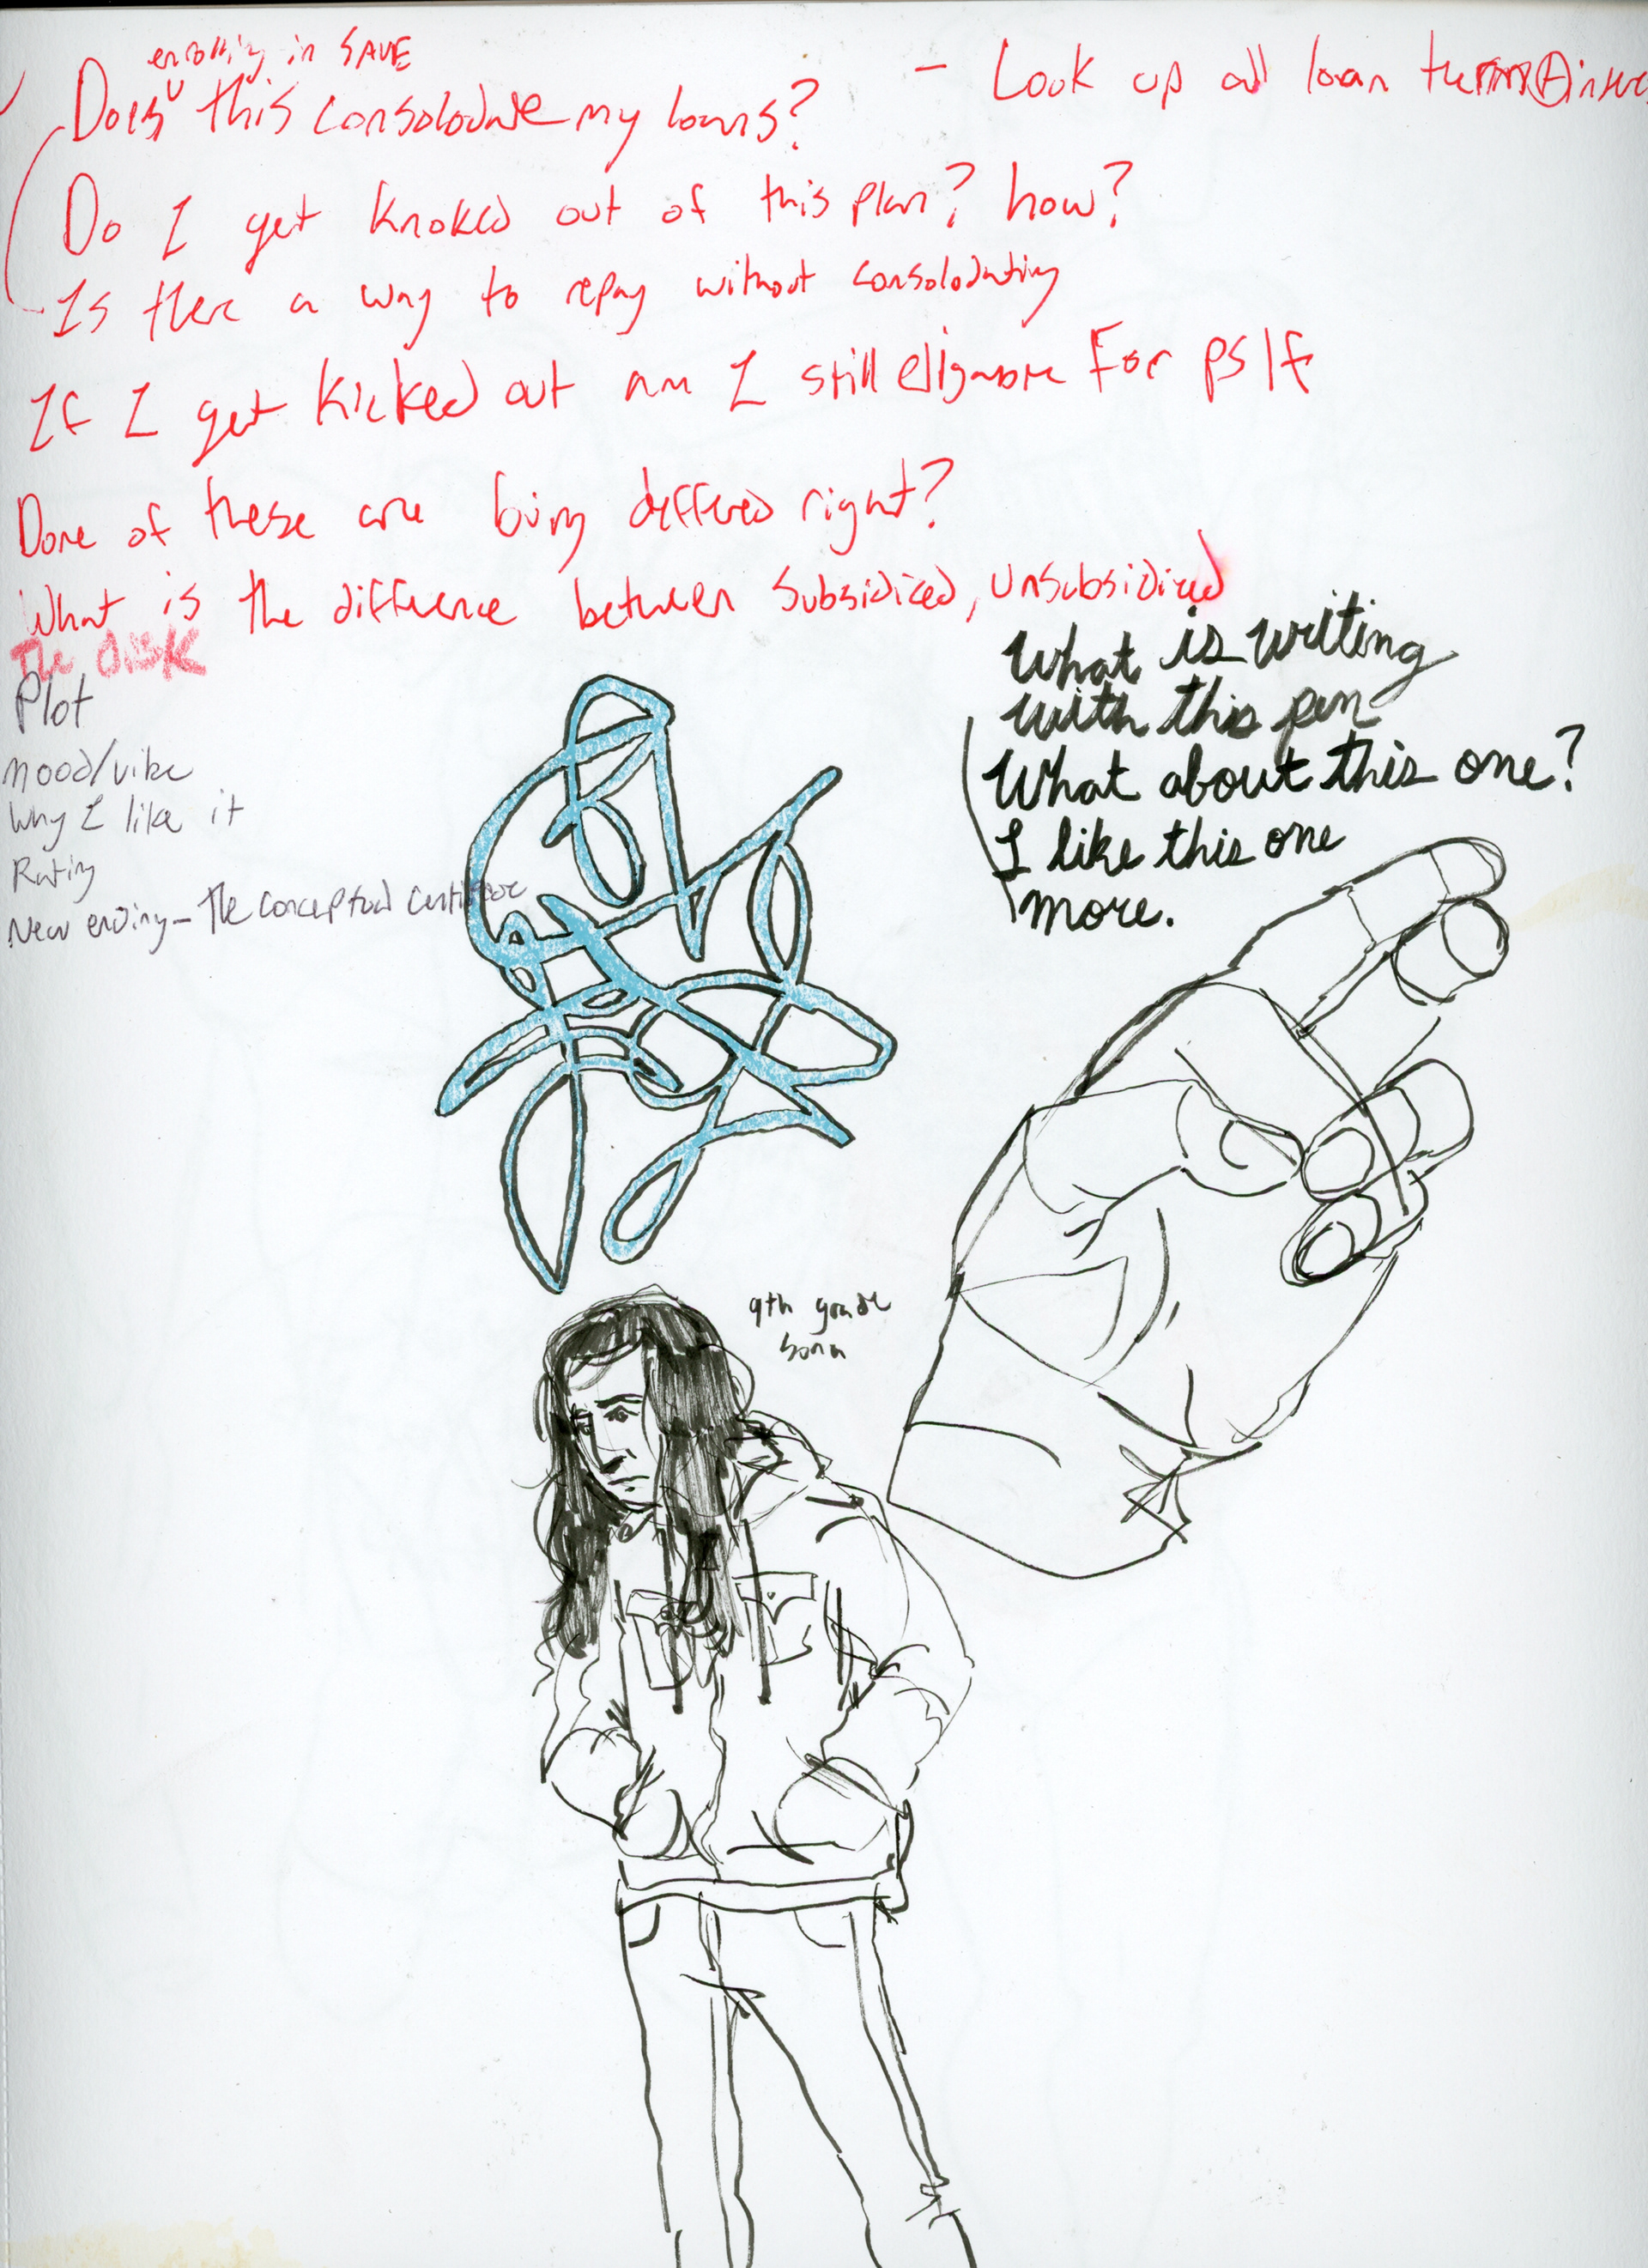 enrolling in SAVE
Does this consolodate my loans?
- Look up all loan
Do I get knoked out of this plan? how?
Is there a way to repay without consolodating
If I get kicked out am I still eligable For pslf
of these are being deffered right?
What is the difference between Subsidized, unsubsidized
The disk
Plot
mood/vibe
Why I like it
Rating
New ending - The conceptual
What is writing
with this pen
What about this one?
I like this one
more.
9th grade